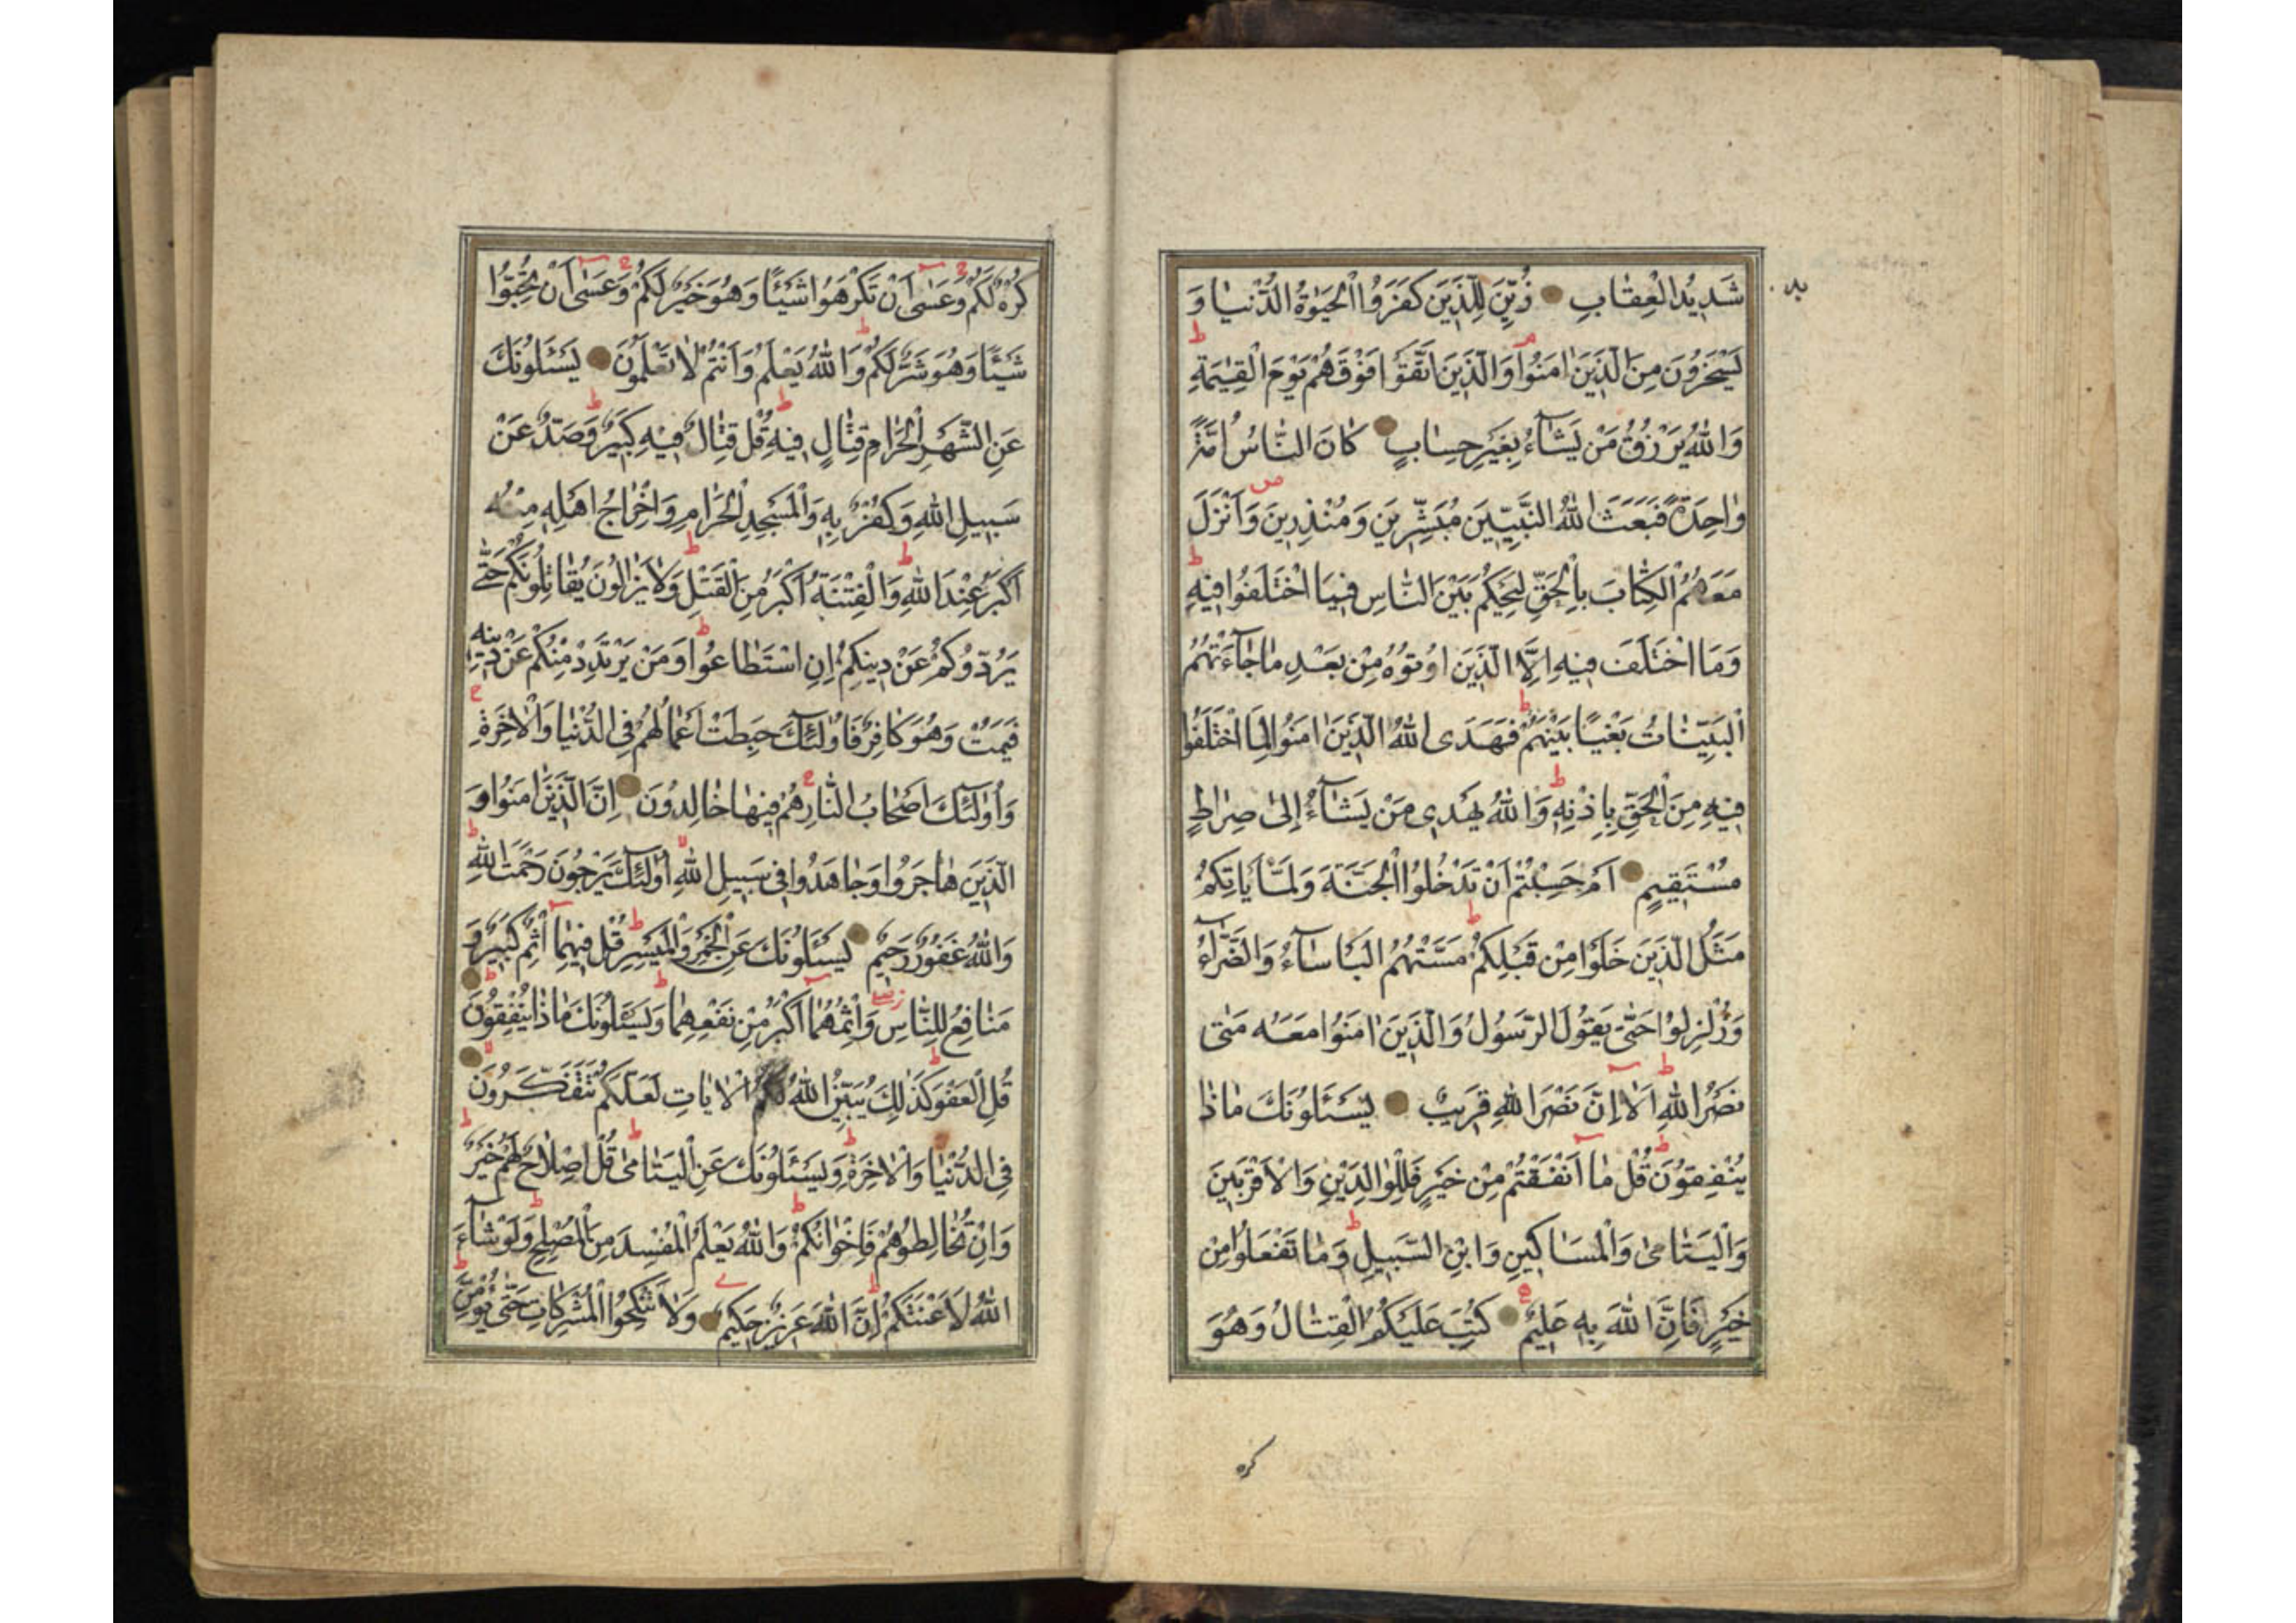 شَدِيدُ الْعِقَابِ زُيِّنَ لِلَّذِينَ كَفَرُوا الْحَيٰوةُ الدُّنْيَا وَ
يَسْخَرُونَ مِنَ الَّذِينَ اٰمَنُوا وَالَّذِينَ اتَّقَوْا فَوْقَهُمْ يَوْمَ الْقِيٰمَةِ
وَاللهُ يَرْزُقُ مَنْ يَشَآءُ بِغَيْرِ حِسَابٍ كَانَ النَّاسُ اُمَّةً
وَاحِدَةً فَبَعَثَ اللهُ النَّبِيِّينَ مُبَشِّرِينَ وَمُنْذِرِينَ وَاَنْزَلَ
مَعَهُمُ الْكِتَابَ بِالْحَقِّ لِيَحْكُمَ بَيْنَ النَّاسِ فِيمَا اخْتَلَفُوا فِيهِ
وَمَا اخْتَلَفَ فِيهِ اِلَّا الَّذِينَ اُوتُوهُ مِنْ بَعْدِ مَا جَآءَتْهُمُ
الْبَيِّنَاتُ بَغْيًا بَيْنَهُمْ فَهَدَى اللهُ الَّذِينَ اٰمَنُوا لِمَا اخْتَلَفُوا
فِيهِ مِنَ الْحَقِّ بِاِذْنِهِ وَاللهُ يَهْدِى مَنْ يَشَآءُ اِلٰى صِرَاطٍ
مُسْتَقِيمٍ اَمْ حَسِبْتُمْ اَنْ تَدْخُلُوا الْجَنَّةَ وَلَمَّا يَاْتِكُمْ
مَثَلُ الَّذِينَ خَلَوْا مِنْ قَبْلِكُمْ مَسَّتْهُمُ الْبَاْسَآءُ وَالضَّرَّآءُ
وَزُلْزِلُوا حَتّٰى يَقُولَ الرَّسُولُ وَالَّذِينَ اٰمَنُوا مَعَهُ مَتٰى
نَصْرُ اللهِ اَلَا اِنَّ نَصْرَ اللهِ قَرِيبٌ يَسْئَلُونَكَ مَاذَا
يُنْفِقُونَ قُلْ مَا اَنْفَقْتُمْ مِنْ خَيْرٍ فَلِلْوَالِدَيْنِ وَالْاَقْرَبِينَ
وَالْيَتَامٰى وَالْمَسَاكِينِ وَابْنِ السَّبِيلِ وَمَا تَفْعَلُوا مِنْ
خَيْرٍ فَاِنَّ اللهَ بِهِ عَلِيمٌ كُتِبَ عَلَيْكُمُ الْقِتَالُ وَهُوَ
كره
كُرْهٌ لَكُمْ وَعَسٰى اَنْ تَكْرَهُوا شَيْئًا وَهُوَ خَيْرٌ لَكُمْ وَعَسٰى اَنْ تُحِبُّوا
شَيْئًا وَهُوَ شَرٌّ لَكُمْ وَاللهُ يَعْلَمُ وَاَنْتُمْ لَا تَعْلَمُونَ يَسْئَلُونَكَ
عَنِ الشَّهْرِ الْحَرَامِ قِتَالٍ فِيهِ قُلْ قِتَالٌ فِيهِ كَبِيرٌ وَصَدٌّ عَنْ
سَبِيلِ اللهِ وَكُفْرٌ بِهِ وَالْمَسْجِدِ الْحَرَامِ وَاِخْرَاجُ اَهْلِهِ مِنْهُ
اَكْبَرُ عِنْدَ اللهِ وَالْفِتْنَةُ اَكْبَرُ مِنَ الْقَتْلِ وَلَا يَزَالُونَ يُقَاتِلُونَكُمْ حَتّٰى
يَرُدُّوكُمْ عَنْ دِينِكُمْ اِنِ اسْتَطَاعُوا وَمَنْ يَرْتَدِدْ مِنْكُمْ عَنْ دِينِهِ
فَيَمُتْ وَهُوَ كَافِرٌ فَاُولٰئِكَ حَبِطَتْ اَعْمَالُهُمْ فِى الدُّنْيَا وَالْاٰخِرَةِ
وَاُولٰئِكَ اَصْحَابُ النَّارِ هُمْ فِيهَا خَالِدُونَ اِنَّ الَّذِينَ اٰمَنُوا وَ
الَّذِينَ هَاجَرُوا وَجَاهَدُوا فِى سَبِيلِ اللهِ اُولٰئِكَ يَرْجُونَ رَحْمَتَ اللهِ
وَاللهُ غَفُورٌ رَحِيمٌ يَسْئَلُونَكَ عَنِ الْخَمْرِ وَالْمَيْسِرِ قُلْ فِيهِمَا اِثْمٌ كَبِيرٌ وَ
مَنَافِعُ لِلنَّاسِ وَاِثْمُهُمَا اَكْبَرُ مِنْ نَفْعِهِمَا وَيَسْئَلُونَكَ مَاذَا يُنْفِقُونَ
قُلِ الْعَفْوَ كَذٰلِكَ يُبَيِّنُ اللهُ لَكُمُ الْاٰيَاتِ لَعَلَّكُمْ تَتَفَكَّرُونَ
فِى الدُّنْيَا وَالْاٰخِرَةِ وَيَسْئَلُونَكَ عَنِ الْيَتَامٰى قُلْ اِصْلَاحٌ لَهُمْ خَيْرٌ
وَاِنْ تُخَالِطُوهُمْ فَاِخْوَانُكُمْ وَاللهُ يَعْلَمُ الْمُفْسِدَ مِنَ الْمُصْلِحِ وَلَوْ شَآءَ
اللهُ لَاَعْنَتَكُمْ اِنَّ اللهَ عَزِيزٌ حَكِيمٌ وَلَا تَنْكِحُوا الْمُشْرِكَاتِ حَتّٰى يُؤْمِنَّ